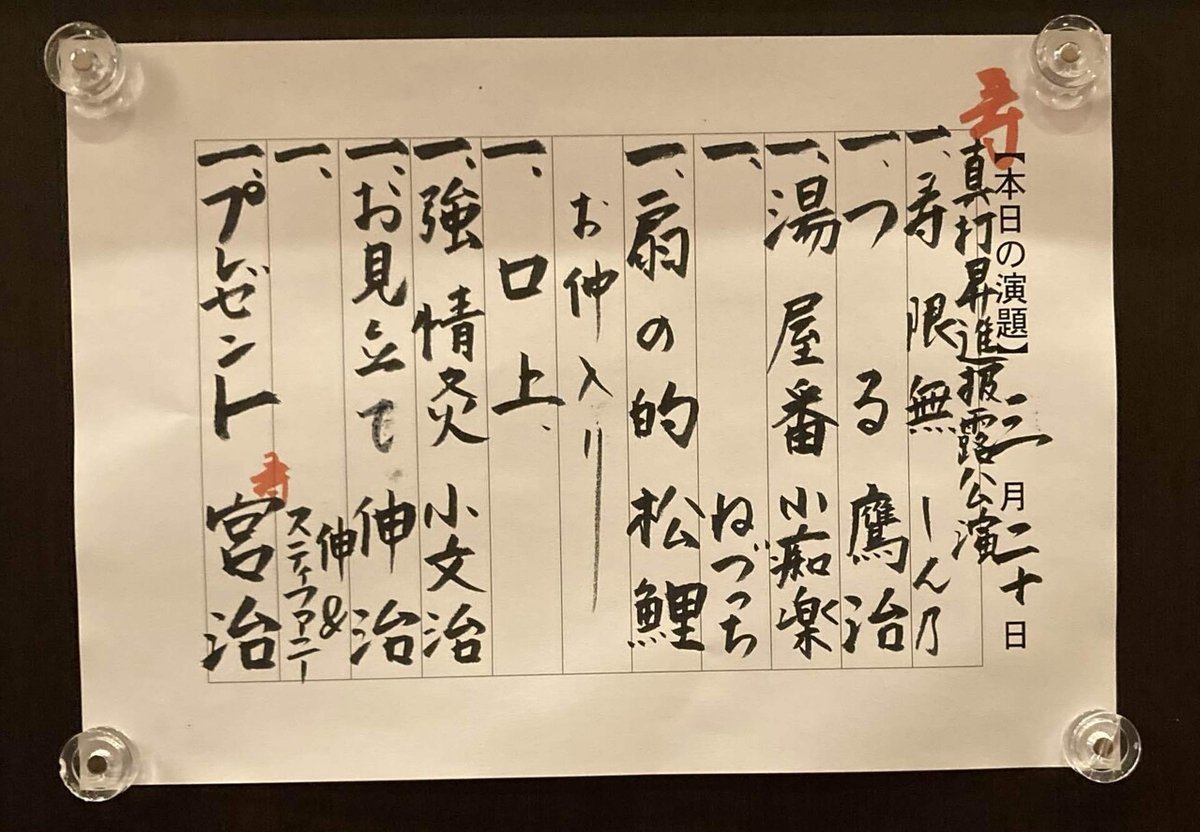 寿
【本日の演題】三月二十日
真打昇進披露公演
一、寿限無 しん乃
一、つる 鷹治
一、湯屋番 小痴楽
一、 ねづっち
一、扇の的 松鯉
お仲入り
一、口上
一、強情灸 小文治
一、お見立て 伸治
一、 伸&スティファニー
一、プレゼント 宮治
寿